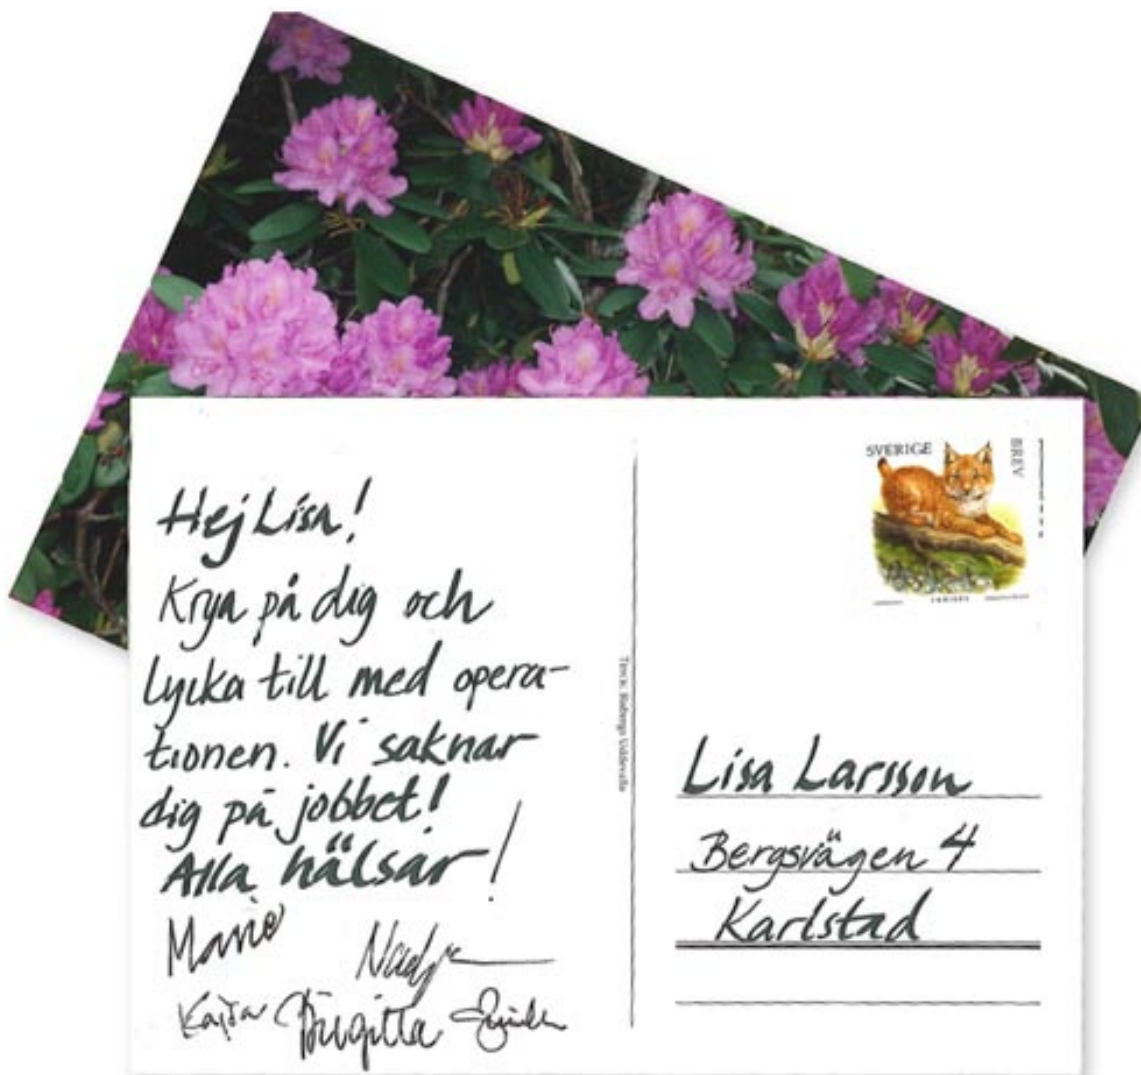 Hej Lisa!
Krya på dig och
lycka till med opera-
tionen. Vi saknar
dig på jobbet!
Alla hälsar!
Marie
Nadja
Kajsa Birgitta
SVERIGE
BREV
Lisa Larsson
Bergsvägen 4
Karlstad